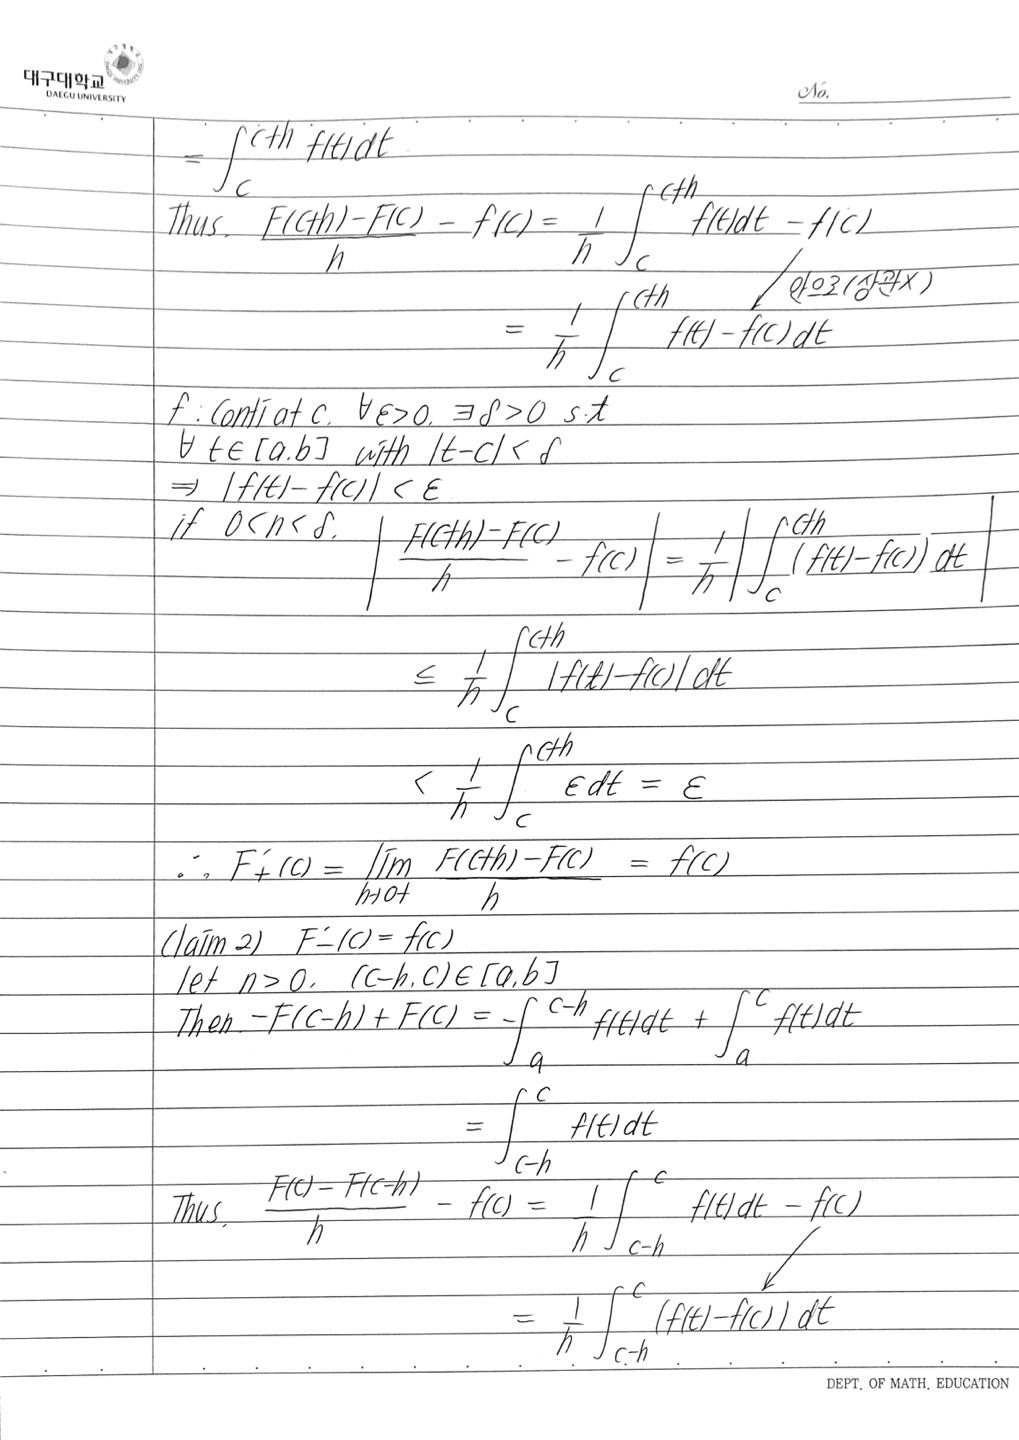 대구대학교
DAEGU UNIVERSITY
No.
= ∫_c^{c+h} f(t)dt
Thus. (F(c+h)-F(c))/h - f(c) = 1/h ∫_c^{c+h} f(t)dt - f(c)
안으로(상관X)
= 1/h ∫_c^{c+h} f(t)-f(c)dt
f : conti at c. ∀ε>0. ∃δ>0 s.t
∀ t∈[a.b] with |t-c|<δ
⇒ |f(t)-f(c)|<ε
if 0<h<δ. |(F(c+h)-F(c))/h - f(c)| = 1/h |∫_c^{c+h} (f(t)-f(c)) dt|
≤ 1/h ∫_c^{c+h} |f(t)-f(c)|dt
< 1/h ∫_c^{c+h} ε dt = ε
∴ F'₊(c) = lim_{h→0+} (F(c+h)-F(c))/h = f(c)
(laim 2) F'₋(c) = f(c)
let h>0. (c-h.c)∈[a,b]
Then -F(c-h)+F(c) = -∫_a^{c-h} f(t)dt + ∫_a^c f(t)dt
= ∫_{c-h}^c f(t)dt
Thus. (F(c)-F(c-h))/h - f(c) = 1/h ∫_{c-h}^c f(t)dt - f(c)
= 1/h ∫_{c-h}^c (f(t)-f(c))dt
DEPT. OF MATH. EDUCATION